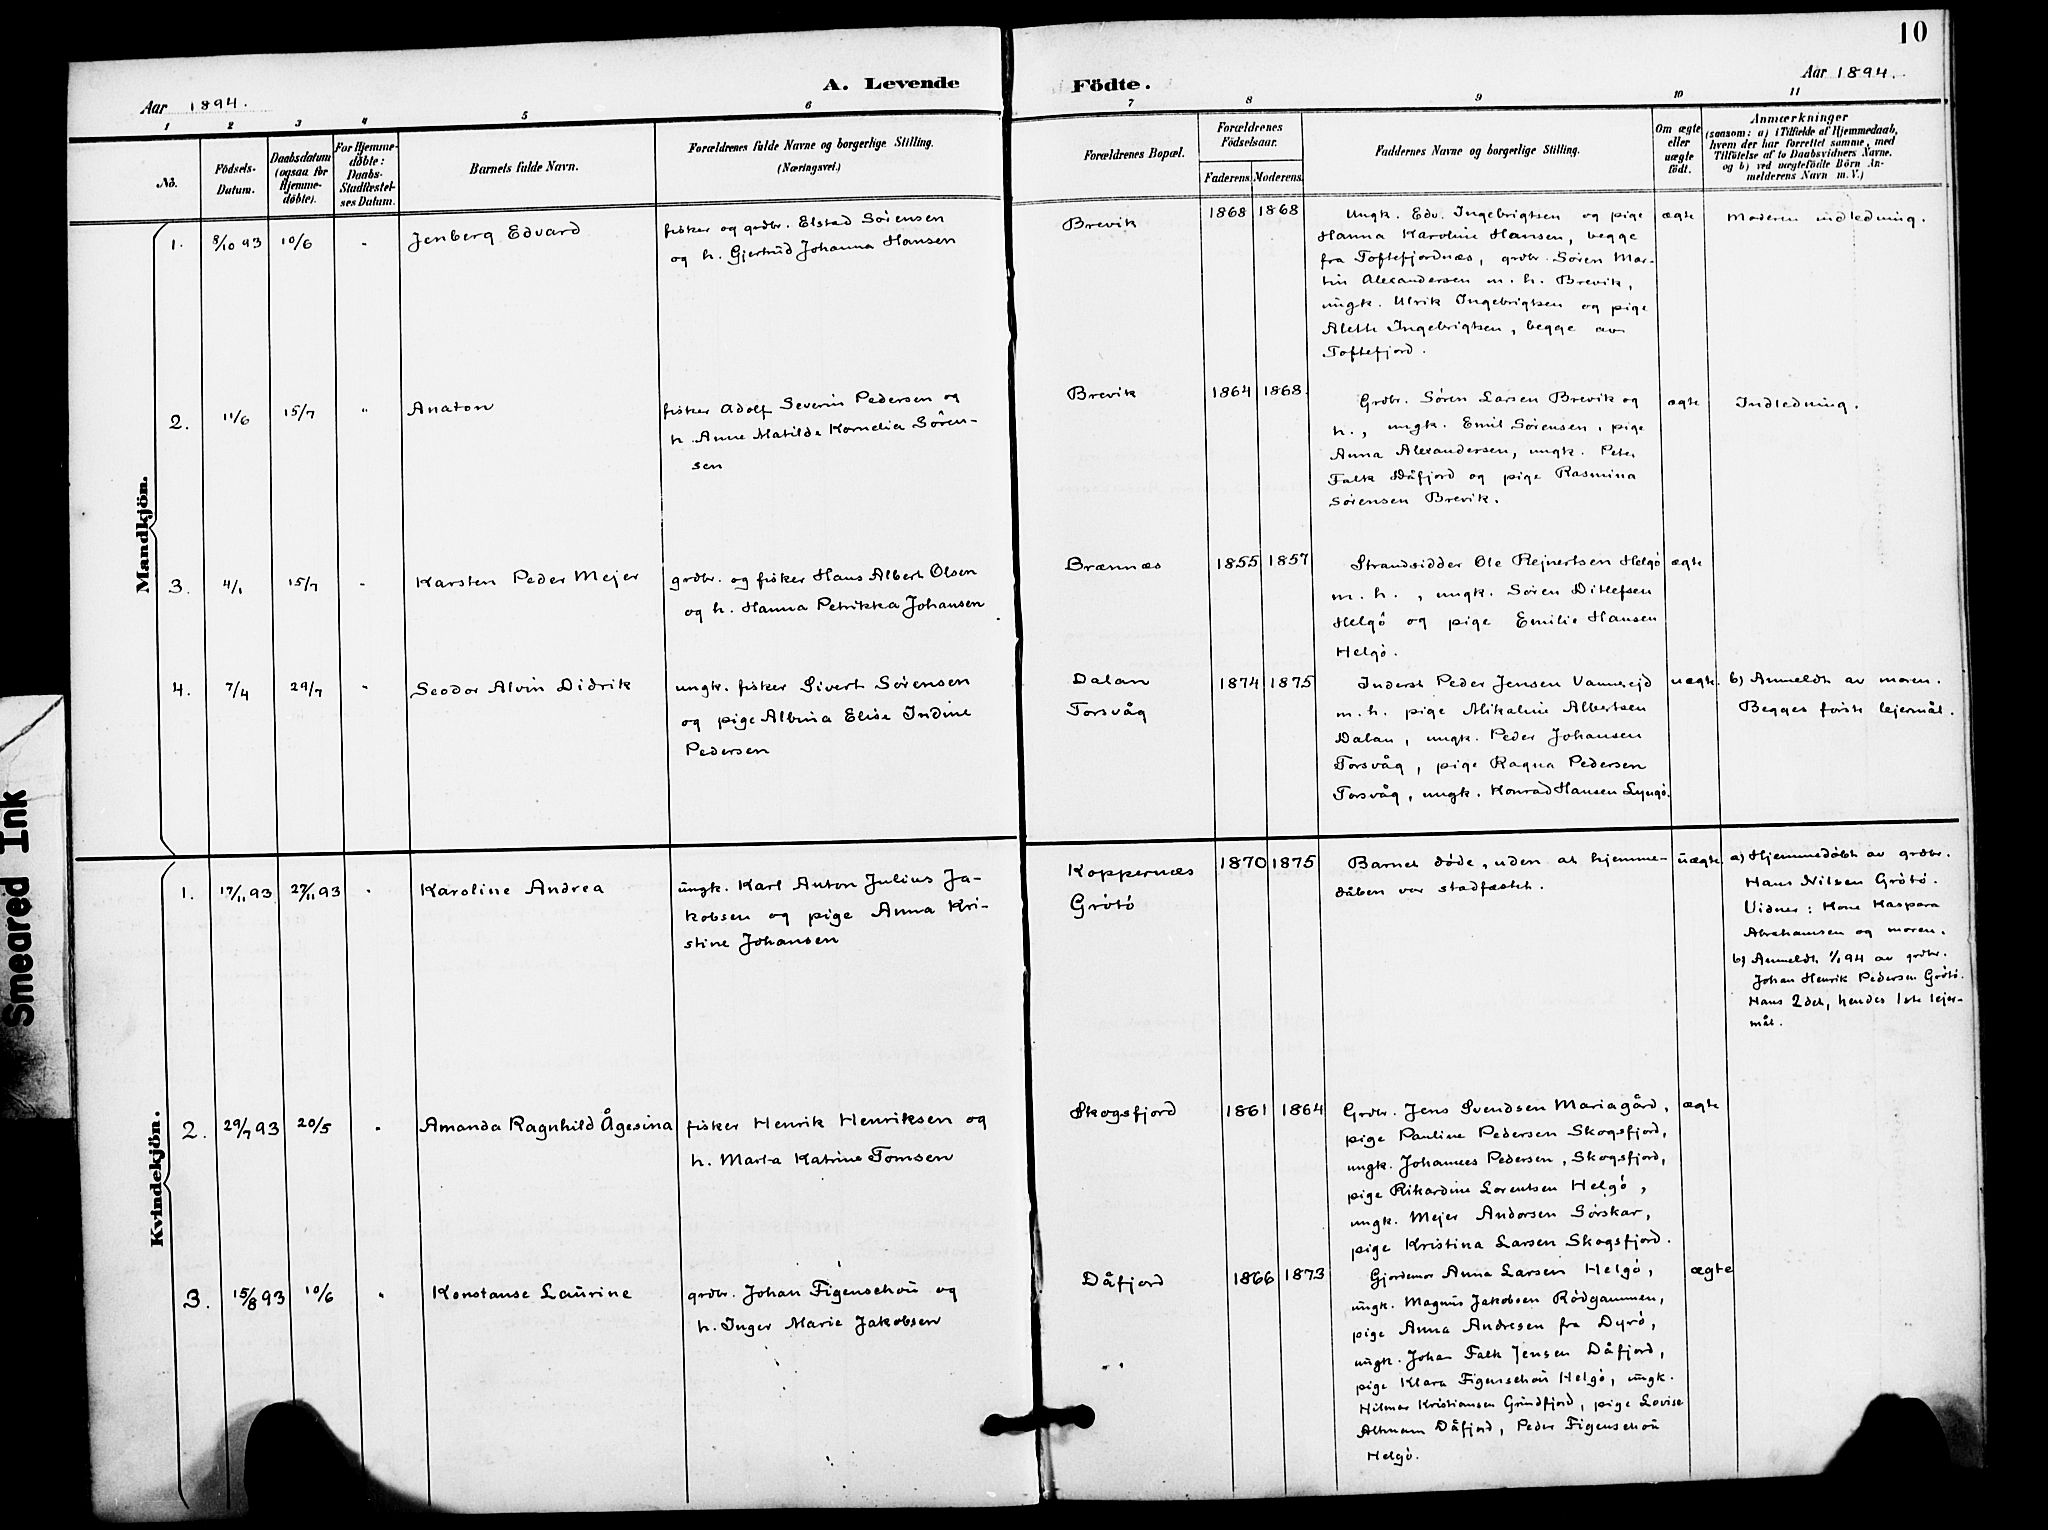 10
Aar 1894.
A. Levende
Födte.
Aar 1894.
1 2 3 4 5 6 7 8 9 10 11
No.
Födsels-
Datum.
Daabsdatum
(ogsaa for
Hjemme-
døbte).
For Hjemme-
døbte:
Daabs-
Stadfæstel-
ses Datum.
Barnets fulde Navn.
Forældrenes fulde Navne og borgerlige Stilling.
(Næringsvei.)
Forældrenes Bopæl.
Forældrenes
Födselsaar.
Faderens Moderens.
Faddernes Navne og borgerlige Stilling.
Om ægte
eller
uægte
födt.
Anmærkninger
(saasom: a) i Tilfælde af Hjemmedaab,
hvem der har forrettet samme, med
Tilföielse af to Daabsvidners Navne.
og b) ved uægtefödte Börn An-
melderens Navn m. V.)
Mandkjön.
1. 8/10 93 10/6 " Jenberg Edvard
fisker og grdbr. Elstad Sørensen
og h. Gjertrud Johanna Hansen
Brevik 1868 1868
Ungk. Edv. Ingebrigtsen og pige
Hanna Karoline Hansen, begge
fra Toftefjordnæs, grdbr. Sören Mar-
tin Alexandersen m. h. Brevik,
ungk. Ulrik Ingebrigtsen og pige
Aleth Ingebrigtsen, begge av
Toftefjord.
ægte Moderen indledning.
2. 11/6 15/7 " Anaton
fisker Adolf Severin Pedersen og
h. Anne Matilde Kornelia Sören-
sen
Brevik 1864 1868.
Grdbr. Sören Larsen Brevik og
h., ungk. Emil Sørensen, pige
Anna Alexandersen, ungk. Peter
Falk Dåfjord og pige Rasmina
Sørensen Brevik.
ægte Indledning.
3. 4/1 15/7 " Karsten Peder Mejer
grdbr. og fisker Hans Albert Olsen
og h. Hanna Petrikka Johansen
Brænnæs 1855 1857
Strandsidder Ole Rejnertsen Helgö
m. h., ungk. Søren Ditlefsen
Helgö og pige Emilie Hansen
Helgö.
ægte
4. 7/4 29/7 " Seodor Alvin Didrik
ungk. fisker Sivert Sørensen
og pige Albina Elise Indine
Pedersen
Dalan
Torsvåg
1874 1875
Inderst Peder Jensen Vannrejd
m. h. pige Mikaline Albertsen
Dalan, ungk. Peder Johansen
Torsvåg, pige Ragna Pedersen
Torsvåg, ungk. Konrad Hansen Lyngö.
uægte. b) Anmeldt av moren.
Begges første lejermål.
Kvindekjön.
1. 17/11 93 27/11 93 " Karoline Andrea
ungk. Karl Anton Julius Ja-
kobsen og pige Anna Kri-
stine Johansen
Koppernæs
Grötö
1870 1875
Barnet døde, uden at hjemme-
dåben var stadfæstet.
uægte a) Hjemmedøbt av grdbr.
Hans Nilsen Grötö.
Vidner: Kone Kaspara
Abrahamsen og moren.
b) Anmeldt 1/1 94 av grdbr.
Johan Henrik Pedersen Grötö.
Hans 2det, hendes 1ste lejer-
mål.
2. 29/7 93 20/5 " Amanda Ragnhild Ågesina
fisker Henrik Henriksen og
h. Marta Katrine Tomsen
Skogsfjord 1861 1864
Grdbr. Jens Svendsen Mariagård,
pige Pauline Pedersen Skogsfjord,
ungk. Johannes Pedersen, Skogsfjord,
pige Rikardine Lorentsen Helgö,
ungk. Mejer Andorsen Sörskar,
pige Kristina Larsen Skogsfjord.
ægte
3. 15/8 93 10/6 " Konstanse Laurine
grdbr. Johan Figenschou og
h. Inger Marie Jakobsen
Dåfjord 1866 1873
Gjordemor Anna Larsen Helgö,
ungk. Magnus Jakobsen Rödgammen,
pige Anna Andresen fra Dyrö,
ungk. Johan Falk Jensen Dåfjord,
pige Klara Figenschou Helgö, ungk.
Hilmar Kristiansen Grundfjord, pige Lovise
Altmann Dåfjord, Peder Figenschou
Helgö.
ægte
Smeared Ink